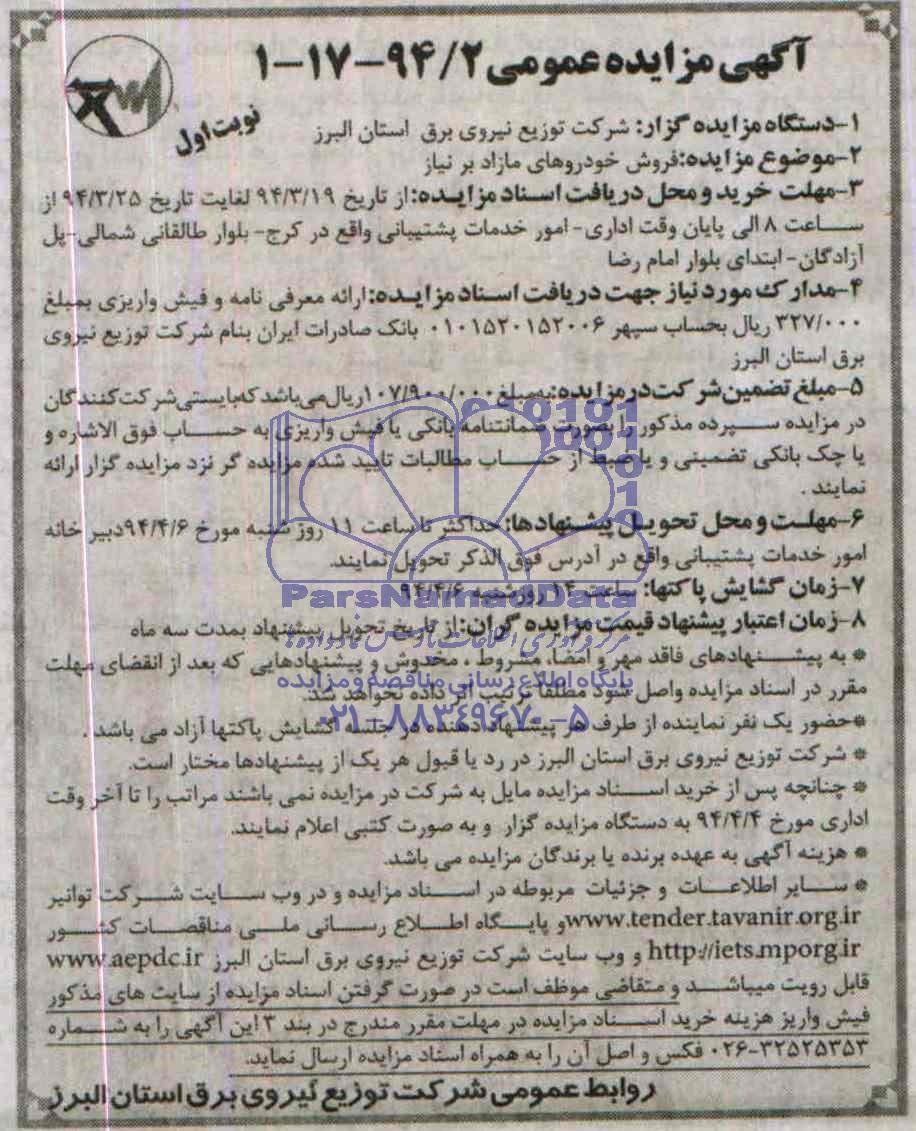 آگهی مزایده عمومی ۹۴/۲-۱۷-۱
نوبت اول
۱-دستگاه مزایده گزار: شرکت توزیع نیروی برق استان البرز
۲-موضوع مزایده:فروش خودروهای مازاد بر نیاز
۳-مهلت خرید و محل دریافت اسناد مزایده:از تاریخ ۹۴/۳/۱۹ لغایت تاریخ ۹۴/۳/۲۵ از
ساعت ۸ الی پایان وقت اداری-امور خدمات پشتیبانی واقع در کرج-بلوار طالقانی شمالی-پل
آزادگان-ابتدای بلوار امام رضا
۴-مدارک مورد نیاز جهت دریافت اسناد مزایده:ارائه معرفی نامه و فیش واریزی بمبلغ
۳۲۷/۰۰۰ ریال بحساب سپهر ۰۱۰۱۵۲۰۱۵۲۰۰۶ بانک صادرات ایران بنام شرکت توزیع نیروی
برق استان البرز
۵-مبلغ تضمین شرکت در مزایده:بمبلغ ۱۰۷/۹۰۰/۰۰۰ریال می باشد که بایستی شرکت کنندگان
در مزایده سپرده مذکور را بصورت ضمانتنامه بانکی یا فیش واریزی به حساب فوق الاشاره و
یا چک بانکی تضمینی و یا ضبط از حساب مطالبات تایید شده مزایده گر نزد مزایده گزار ارائه
نمایند .
۶-مهلت و محل تحویل پیشنهادها:حداکثر تا ساعت ۱۱ روز شنبه مورخ ۹۴/۴/۶دبیر خانه
امور خدمات پشتیبانی واقع در آدرس فوق الذکر تحویل نمایند.
۷-زمان گشایش پاکتها: ساعت ۱۴ روزشنبه ۹۴/۴/۶
ParsNamadData
۸-زمان اعتبار پیشنهاد قیمت مزایده گران:از تاریخ تحویل پیشنهاد بمدت سه ماه
* به پیشنهادهای فاقد مهر و امضا، مشروط ، مخدوش و پیشنهادهایی که بعد از انقضای مهلت
پایگاه اطلاع رسانی مناقصه و مزایده
مقرر در اسناد مزایده واصل شود مطلقا ترتیب اثر داده نخواهد شد.
۰۲۱-۸۸۳۴۹۶۷۰-۵
*حضور یک نفر نماینده از طرف هر پیشنهاد دهنده در جلسه گشایش پاکتها آزاد می باشد .
* شرکت توزیع نیروی برق استان البرز در رد یا قبول هر یک از پیشنهادها مختار است.
* چنانچه پس از خرید اسناد مزایده مایل به شرکت در مزایده نمی باشند مراتب را تا آخر وقت
اداری مورخ ۹۴/۴/۴ به دستگاه مزایده گزار و به صورت کتبی اعلام نمایند.
* هزینه آگهی به عهده برنده یا برندگان مزایده می باشد.
* سایر اطلاعات و جزئیات مربوطه در اسناد مزایده و در وب سایت شرکت توانیر
www.tender.tavanir.org.irو پایگاه اطلاع رسانی ملی مناقصات کشور
http://iets.mporg.ir و وب سایت شرکت توزیع نیروی برق استان البرز www.aepdc.ir
قابل رویت میباشد و متقاضی موظف است در صورت گرفتن اسناد مزایده از سایت های مذکور
فیش واریز هزینه خرید اسناد مزایده در مهلت مقرر مندرج در بند ۳ این آگهی را به شماره
۰۲۶-۳۲۵۲۵۳۵۳ فکس و اصل آن را به همراه اسناد مزایده ارسال نماید.
روابط عمومی شرکت توزیع نیروی برق استان البرز